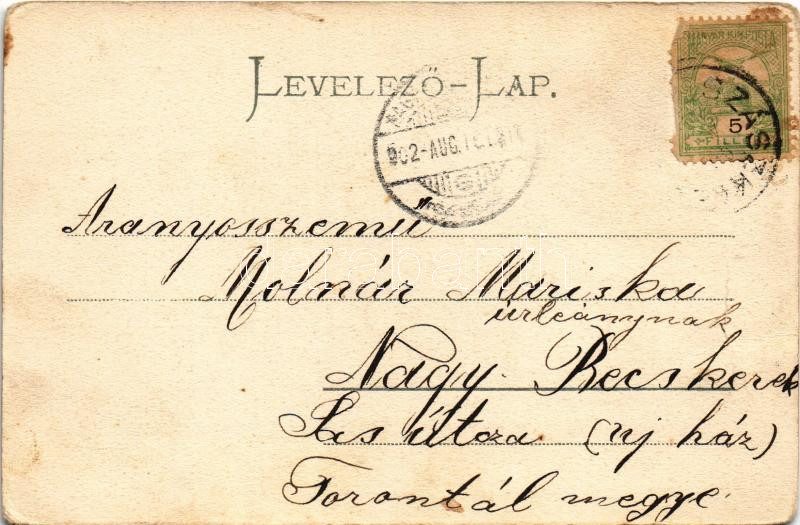 LEVELEZŐ-LAP.
MAGYAR KIR. POSTA
5
FILLÉR
SZÁSZ
902-AUG.
Aranyosszemü
Molnár Mariska
urleánynak
Nagy Becskerek
Sas útcza (uj ház)
Torontál megye.